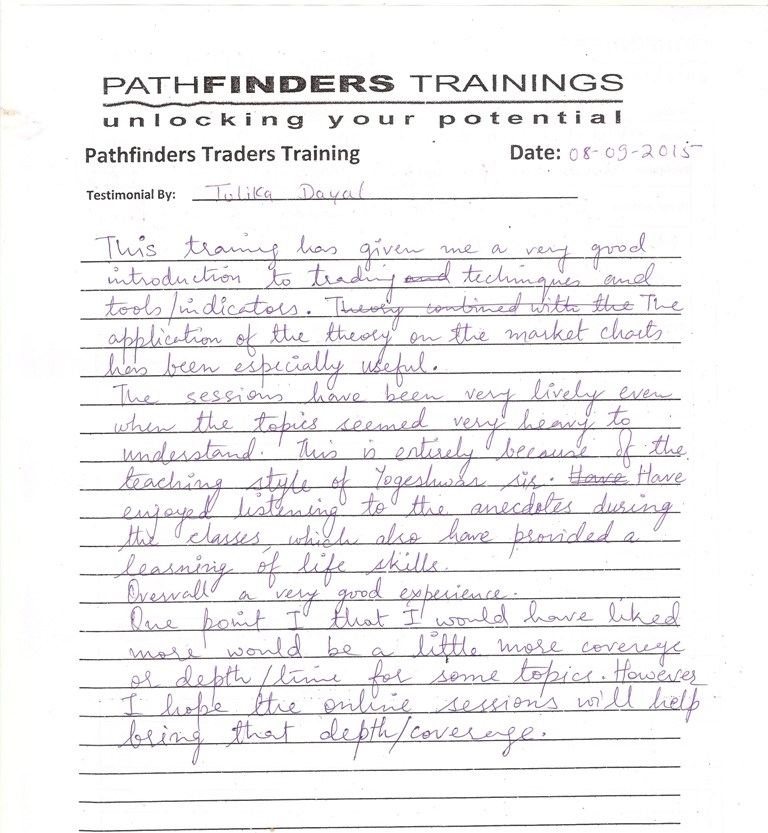 PATHFINDERS TRAININGS
unlocking your potential
Pathfinders Traders Training Date: 08-09-2015
Testimonial By: Tulika Dayal
This training has given me a very good
introduction to trading and techniques and
tools/indicators. Theory combined with the The
application of the theory on the market charts
has been especially useful.
The sessions have been very lively even
when the topics seemed very heavy to
understand. This is entirely because of the
teaching style of Yogeshwar sir. Have Have
enjoyed listening to the anecdotes during
the classes, which also have provided a
learning of life skills.
Overall a very good experience.
One point I that I would have liked
more would be a little more coverage
or depth/time for some topics. However
I hope the online sessions will help
bring that depth/coverage.